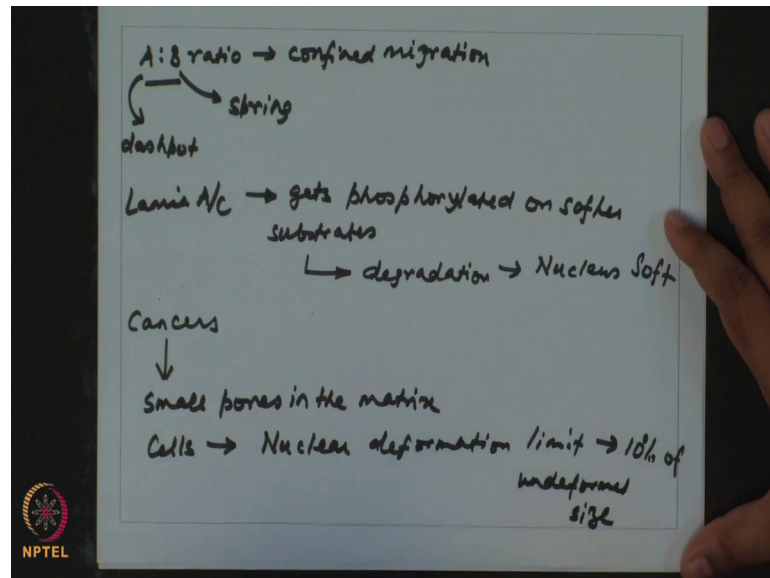 A:B ratio → confined migration
spring
dashpot
Lamin A/c → gets phosphorylated on softer
substrates
degradation → Nucleus Soft
Cancers
Small pores in the matrix
Cells → Nuclear deformation limit → 10% of
undeformed
size
NPTEL